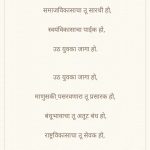 समाजविकासाचा तू सारथी हो,
स्वयंविकासाचा पाईक हो,
उठ युवका जागा हो.
उठ युवका जागा हो.
माणुसकी पसरवणारा तू प्रसारक हो,
बंधूभावाचा तू अतूट बंध हो,
राष्ट्रविकासाचा तू सेवक हो,